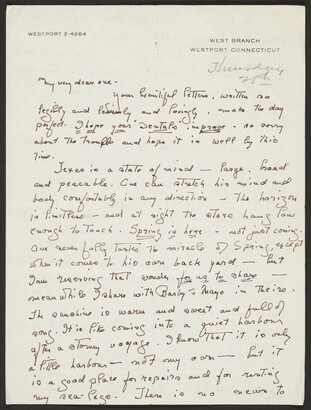 WESTPORT 2-4264
WEST BRANCH
WESTPORT CONNECTICUT
Thursday
My very dear one.
Your beautiful letters, written so
legibly and and lovingly, make the day
perfect. I hope your improve. So sorry
about the trouble and hope it is well by this
time.
Texas is a state of mind — large, broad
and peaceable. One can stretch his mind and
body comfortably in any direction – the horizon
is limitless – and at night the stars hang low
enough to touch. Spring is here – not just coming.
One never fully tastes the miracle of Spring except
when it comes to his own back yard – but
I am reserving that wonder for us to share –
meanwhile I share with & Mayo in theirs.
The sunshine is warm and sweet and full of
song. It is like coming into a quiet harbour
after a stormy voyage. I know that it is only
a little harbour – not my own – but it
is a good place for repairs and for resting
my sea-legs. There is no news to